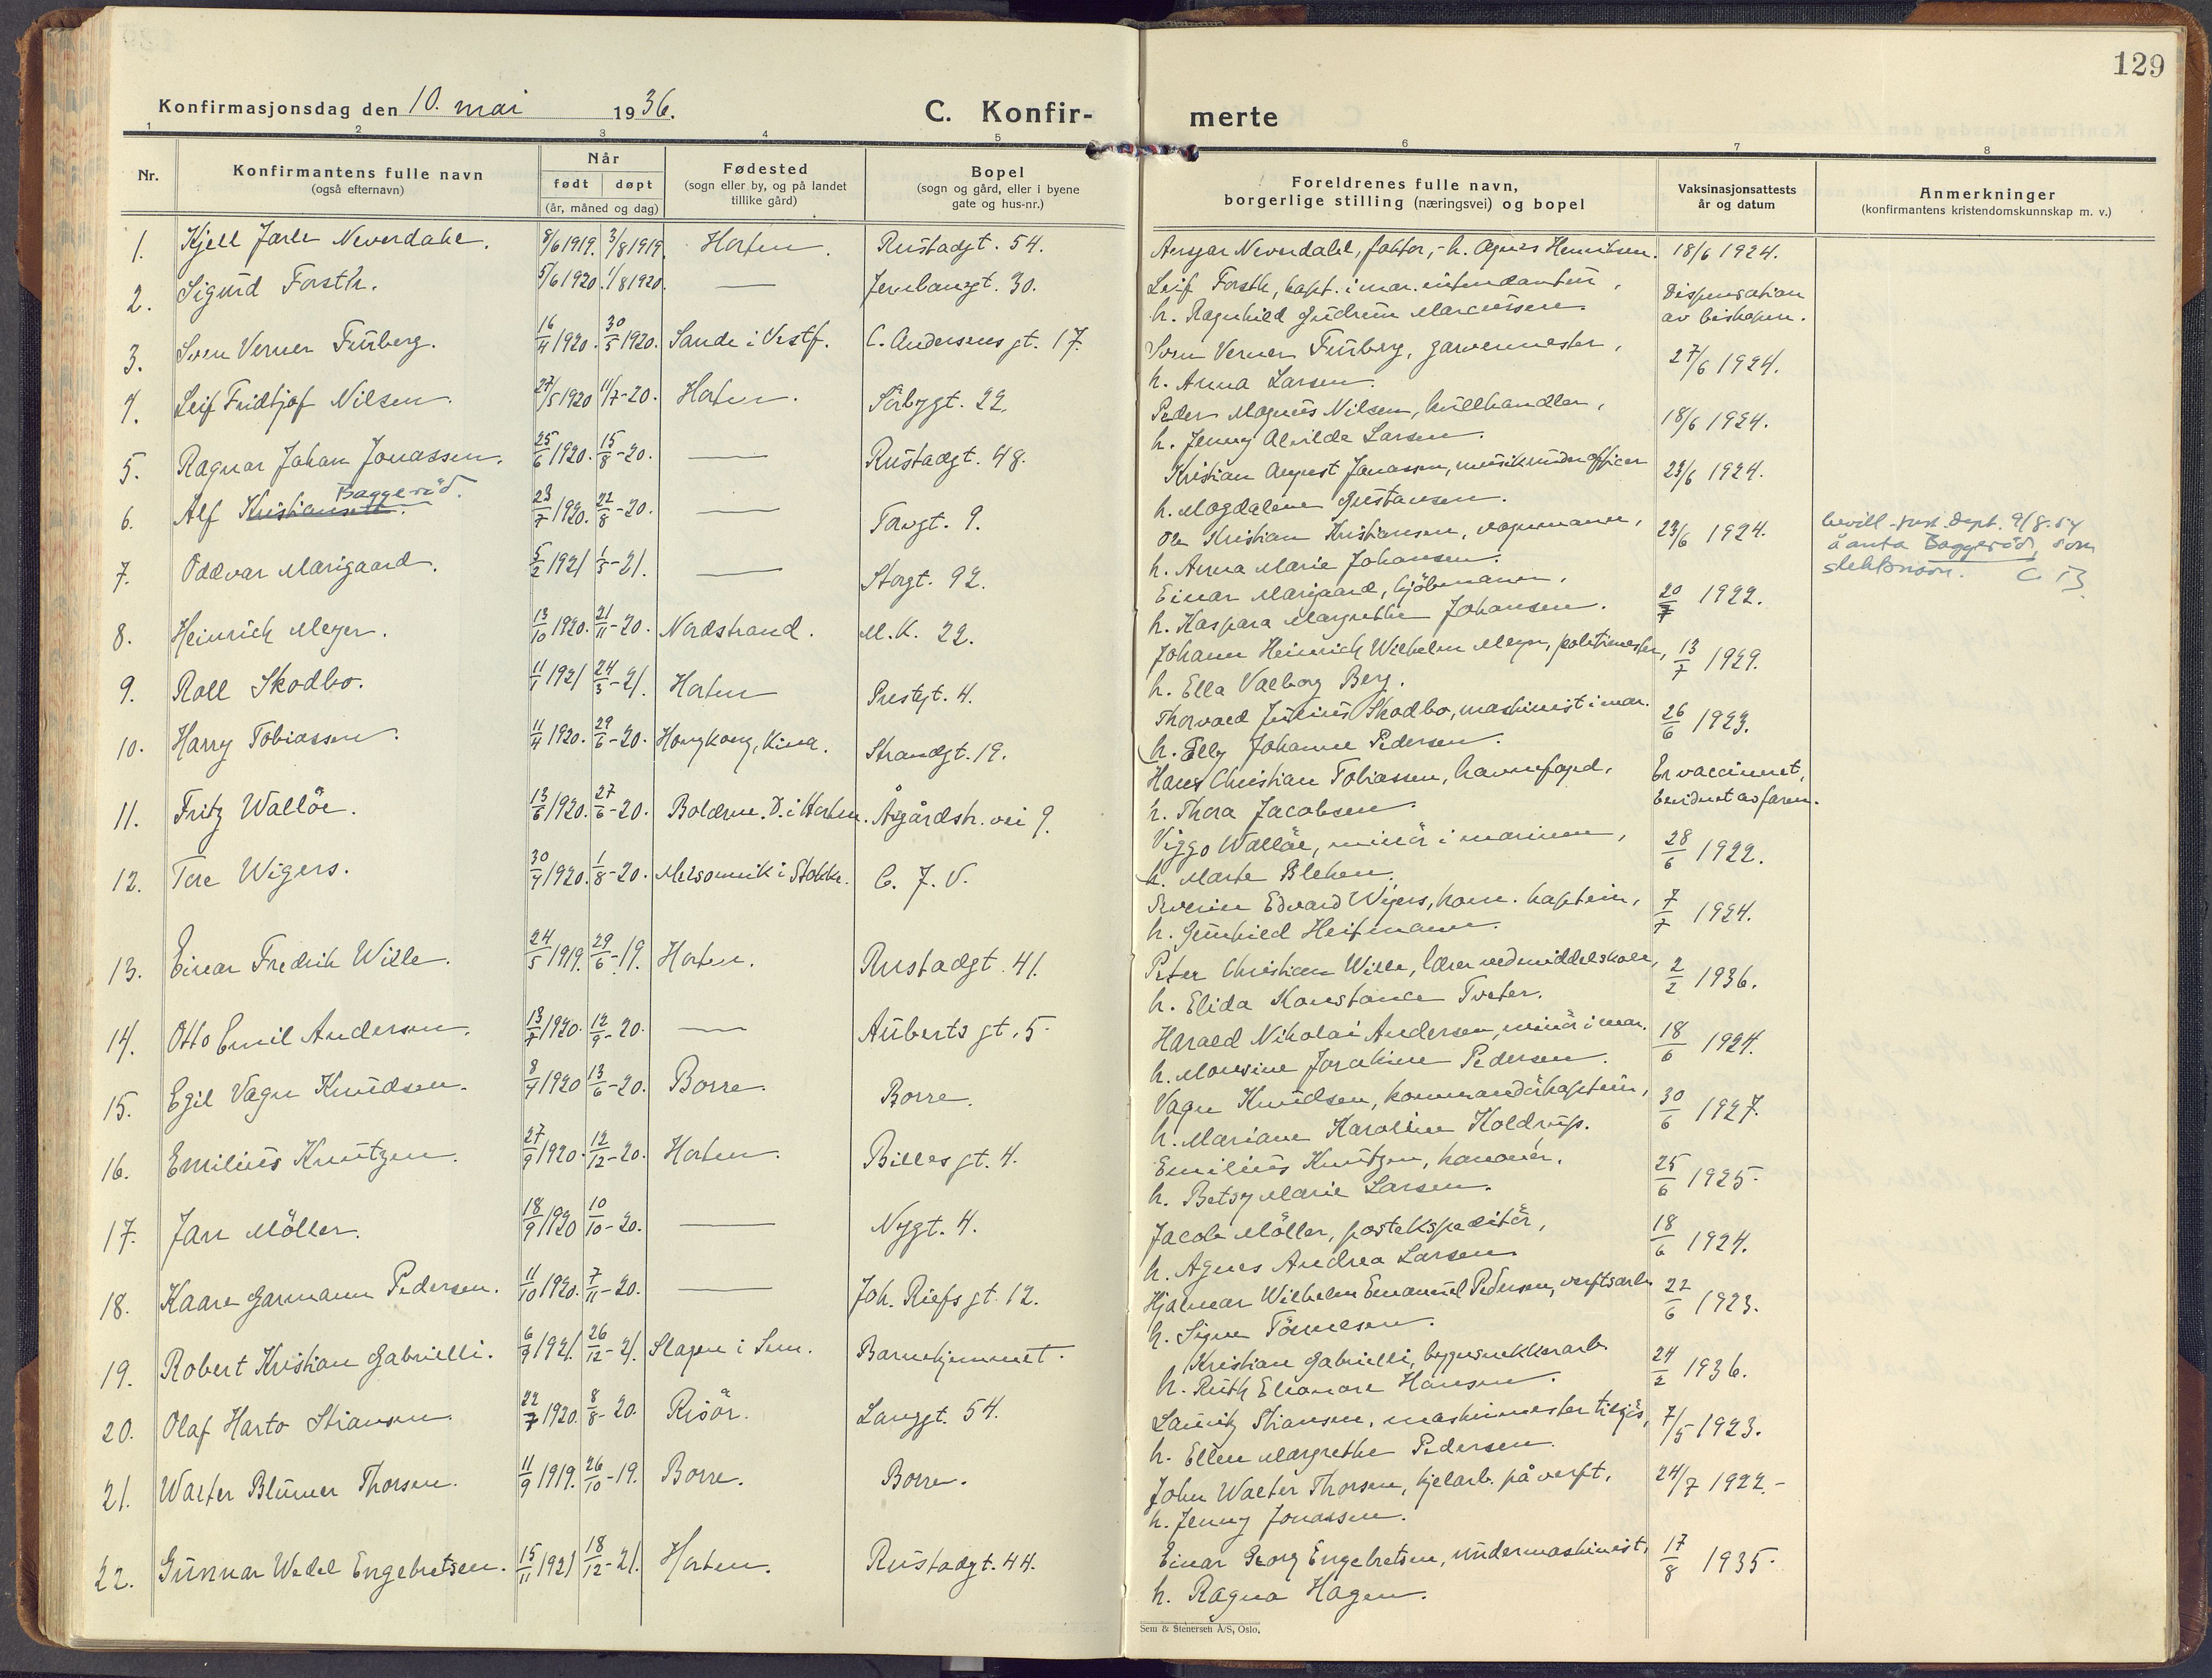 129
Konfirmasjonsdag den 10. mai 1936. C. Konfir- merte
1 2 3 4 5 6 7 8
Nr. Konfirmantens fulle navn (også efternavn) Når født døpt (år, måned og dag) Fødested (sogn eller by, og på landet tillike gård) Bopel (sogn og gård, eller i byene gate og hus-nr.) Foreldrenes fulle navn, borgerlige stilling (næringsvei) og bopel Vaksinasjonsattests år og datum Anmerkninger (konfirmantens kristendomskunnskap m. v.)
1. Kjell Jarle Neverdahl. 8/6 1919. 3/8 1919. Horten. Rustadgt. 54. Ansgar Neverdahl, faktor, - h. Agnes Henriksen. 18/6 1924.
2. Sigurd Forsth. 5/6 1920. 1/8 1920. — Jernbanegt. 30. Leif Forsth, kapt. i mar. intendantur,
h. Ragnhild Gudrun Marcussen. Dispensation av biskopen.
3. Sven Verner Furberg. 16/4 1920. 30/5 1920. Sande i Vestf. C. Andersens gt. 17. Sven Verner Furberg, garvermester,
h. Anna Larsen. 27/6 1924.
4. Leif Fridtjof Nilsen. 27/5 1920 11/7-20. Horten. Sørbygt. 22. Peder Magnus Nilsen, kullhandler,
h. Jenny Alvilde Larsen. 18/6 1924.
5. Ragnar Johan Jonassen. 25/6 1920. 15/8-20. — Rustadgt. 48. Kristian August Jonassen, musikunderofficer
h. Magdalene Gustavsen. 23/6 1924.
6. Alf Kristiansen. Baggerød. 23/7 1920. 22/8-20. — Torvgt. 9. Ole Kristian Kristiansen, vognmann,
h. Anna Marie Johansen. 23/6 1924. bevill. Just. Dept. 9/8-54
å anta Baggerød som
slektsnavn.
7. Oddvar Marigaard. 5/2 1921 1/5-21. — Storgt. 92. Einar Marigaard, kjøbmann,
h. Kaspara Margrethe Johansen. 20/7 1922.
8. Heinrich Meyer. 13/10 1920. 21/11-20. Nordstrand. M.K. 22. Johann Heinrich Wilhelm Meyer, politimester,
h. Ella Valborg Berg. 13/7 1929.
9. Roll Skodbo. 11/1 1921 24/3-21. Horten Prestegt. 4. Thorvald Julius Skodbo, maskinist i mar.
h. Elly Johanne Pedersen. 26/6 1923.
10. Harry Tobiassen. 11/4 1920. 29/6-20. Hongkong, Kina. Strandgt. 19. Hans Christian Tobiassen, havnefoged,
h. Thora Jacobsen. Er vaccinert, bevidnet av faren.
11. Fritz Walløe. 13/6 1920. 27/6-20. Bolærne. D. i Horten. Åsgårdstr. vei 9. Viggo Walløe, minør i marinen,
h. Marte Bleken. 28/6 1922.
12. Tore Wigers. 30/4 1920. 1/8-20. Melsomvik i Stokke. C. J. V. Severin Edvard Wigers, kom. kaptein,
h. Gunhild Heitmann. 7/7 1924.
13. Einar Fredrik Wille. 24/5 1919. 29/6-19. Horten. Rustadgt. 41. Peter Christian Wille, lærer ved middelskole,
h. Elida Konstance Tveter. 2/2 1936.
14. Otto Emil Andersen. 13/7 1920. 12/9-20. — Auberts gt. 5. Harald Nikolai Andersen, minør i mar.
h. Monsine Jorakine Pedersen. 18/6 1924.
15. Egil Vagn Knudsen. 8/4 1920 13/6-20. Borre. Borre. Vagn Knudsen, kommandørkaptein,
h. Mariane Karoline Koldrup. 30/6 1927.
16. Emilius Knutzen. 27/9 1920. 12/12-20. Horten. Billes gt. 4. Emilius Knutzen, kanonér,
h. Betsy Marie Larsen. 25/6 1925.
17. Jan Møller. 18/9 1920 10/10-20. — Nygt. 4. Jacob Møller, postekspeditør,
h. Agnes Andrea Larsen. 18/6 1924.
18. Kaare Garmann Pedersen. 11/10 1920. 7/11-20. — Joh. Riefs gt. 12. Hjalmar Wilhelm Emanuel Pedersen, verftsarb.
h. Signe Tønnesen. 22/6 1923.
19. Robert Kristian Gabrielli. 6/9 1921. 26/12-21. Slagen i Sem. Barnehjemmet. Kristian Gabrielli, bygnsnekkerarb.
h. Ruth Eleonore Hansen. 24/2 1936.
20. Olaf Harto Stiansen. 22/7 1920. 8/8-20. Risør. Langgt. 54. Lauritz Stiansen, maskinmester tilsjøs,
h. Ellen Margrethe Pedersen. 7/5 1923.
21. Walter Blümer Thorsen. 11/9 1919. 26/10-19. Borre. Borre. John Walter Thorsen, kjelarb. på verft,
h. Jenny Jonassen. 24/7 1922.-
22. Gunnar Wedel Engebretsen. 15/11 1921 18/12-21. Horten. Rustadgt. 44. Einar Georg Engebretsen, undermaskinist,
h. Ragna Hagen. 17/8 1935.
Sem & Stenersen A/S, Oslo.